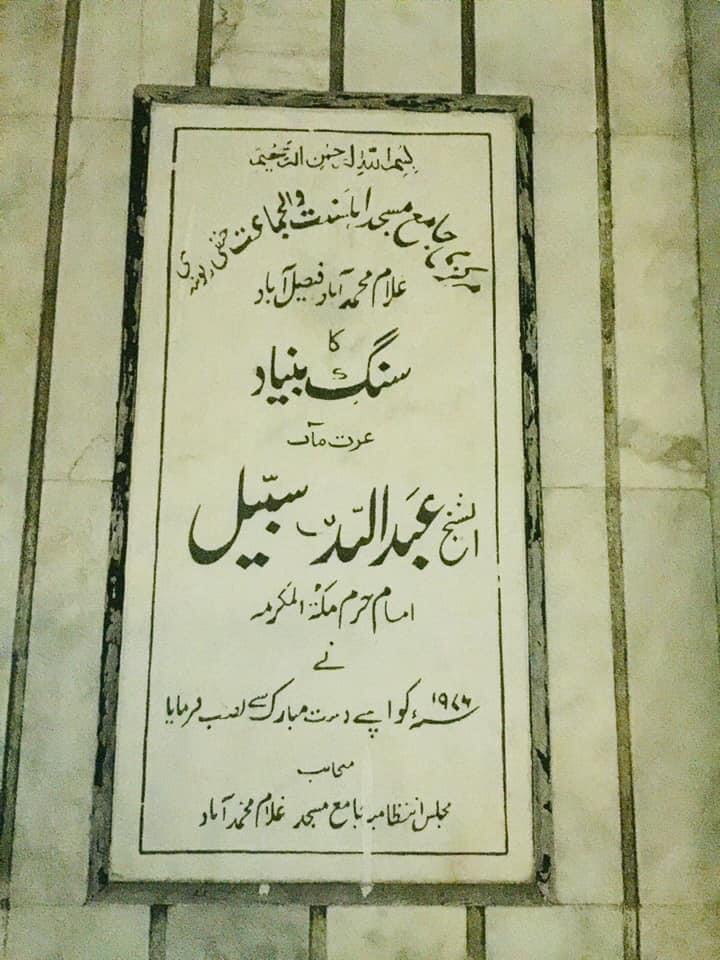 بسم اللہ الرحمن الرحیم
مرکزی جامع مسجد اہلسنت والجماعت حنفی دیوبندی
غلام محمد آباد فیصل آباد
کا
سنگِ بنیاد
عزت مآب
الشیخ عبد اللہ بن سبیل
امام حرم مکۃ المکرمہ
نے
۱۹۷۶ء کو اپنے دست مبارک سے نصب فرمایا
منجانب
مجلس انتظامیہ جامع مسجد غلام محمد آباد